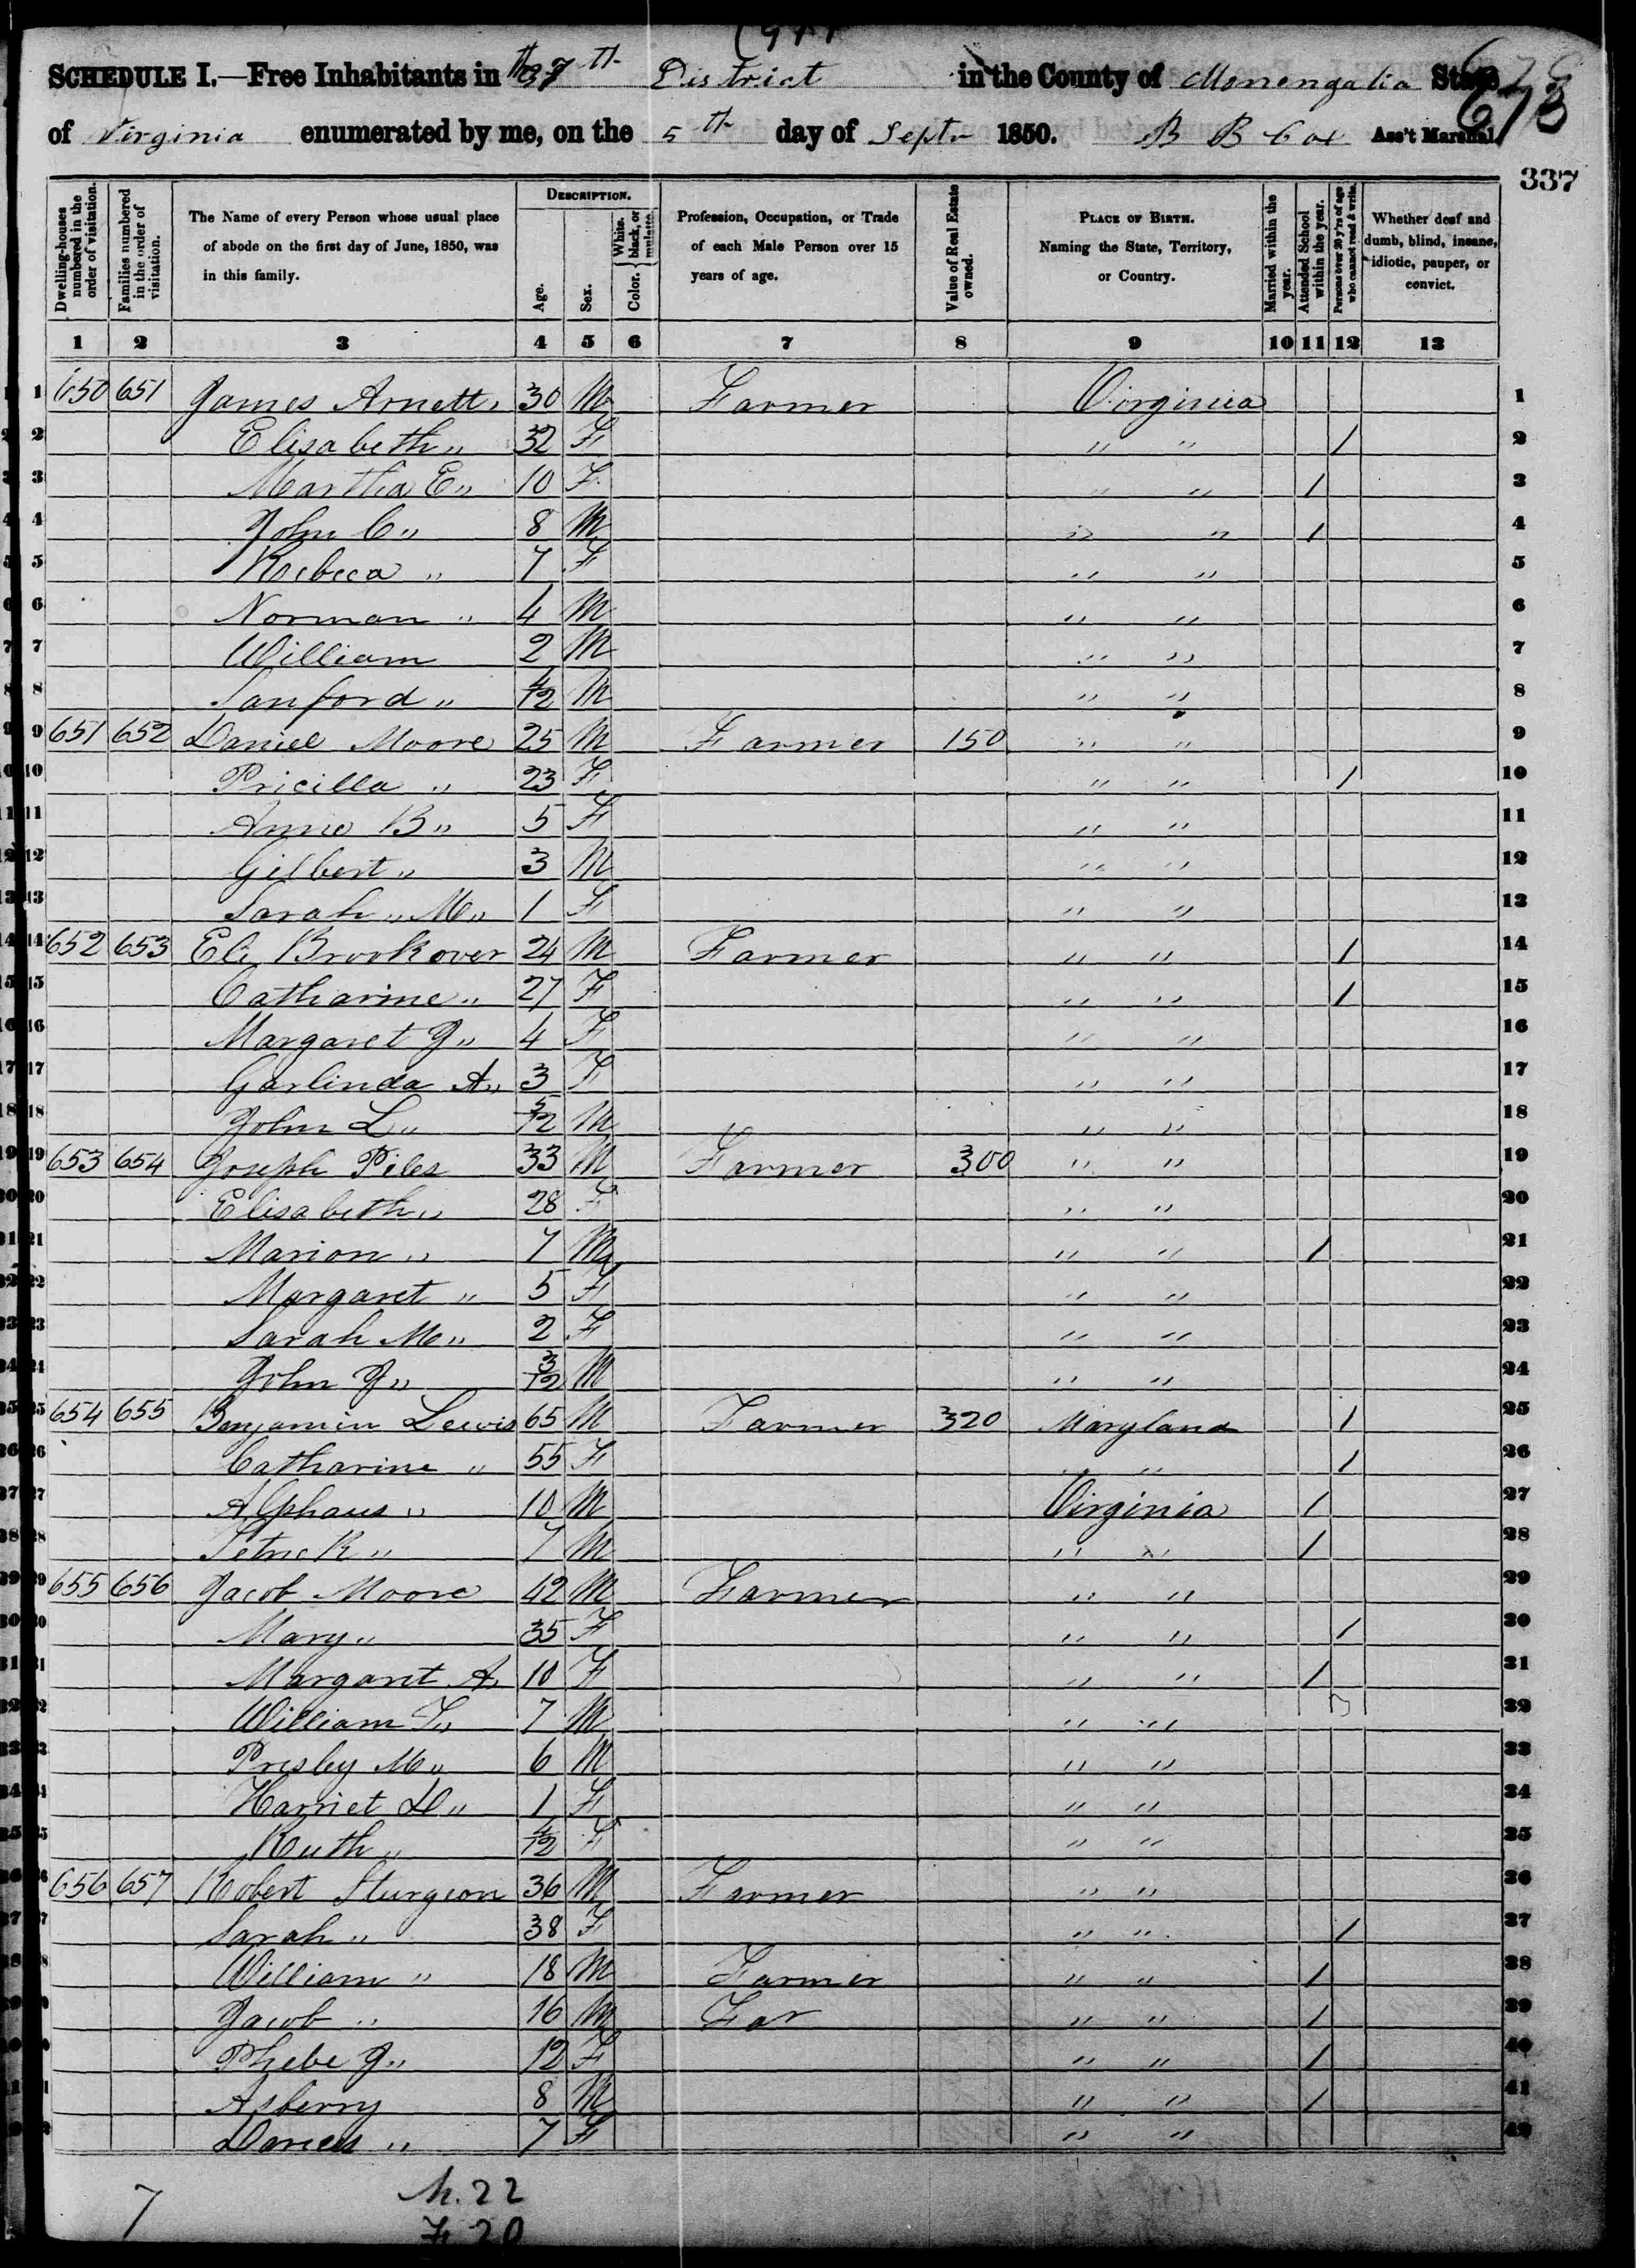 SCHEDULE I.—Free Inhabitants in the 37th District in the County of Monongalia State
of Virginia enumerated by me, on the 5th day of Septr 1850. B B Cox Ass't Marshal.
673
337
Dwelling-houses numbered in the order of visitation.
Families numbered in the order of visitation.
The Name of every Person whose usual place of abode on the first day of June, 1850, was in this family.
DESCRIPTION.
Age.
Sex.
Color. { White, black, or mulatto.
Profession, Occupation, or Trade of each Male Person over 15 years of age.
Value of Real Estate owned.
PLACE OF BIRTH. Naming the State, Territory, or Country.
Married within the year.
Attended School within the year.
Persons over 20 y'rs of age who cannot read & write.
Whether deaf and dumb, blind, insane, idiotic, pauper, or convict.
1 2 3 4 5 6 7 8 9 10 11 12 13
1 650 651 James Arnett 30 M Farmer Virginia 1
2 Elisabeth " 32 F " " / 2
3 Martha E " 10 F " " / 3
4 John C " 8 M " " / 4
5 Rebeca " 7 F " " 5
6 Norman " 4 M " " 6
7 William 2 M " " 7
8 Sanford " 4/12 M " " 8
9 651 652 Daniel Moore 25 M Farmer 150 " " 9
10 Pricilla " 23 F " " / 10
11 Anne B " 5 F " " 11
12 Gilbert " 3 M " " 12
13 Sarah " M " 1 F " " 13
14 652 653 Eli Brookover 24 M Farmer " " / 14
15 Catharine " 27 F " " / 15
16 Margaret J " 4 F " " 16
17 Garlinda A " 3 F " " 17
18 John L " 5/12 M " " 18
19 653 654 Joseph Piles 33 M Farmer 300 " " 19
20 Elisabeth " 28 F " " 20
21 Marion " 7 M " " / 21
22 Margaret " 5 F " " 22
23 Sarah M " 2 F " " 23
24 John J " 3/12 M " " 24
25 654 655 Benjamin Lewis 65 M Farmer 320 Maryland / 25
26 Catharine " 55 F " " / 26
27 Alphaus " 10 M Virginia / 27
28 " 7 M " " / 28
29 655 656 Jacob Moore 42 M Farmer " " 29
30 Mary " 35 F " " / 30
31 Margaret A 10 F " " / 31
32 William T " 7 M " " 32
33 Presley M " 6 M " " 33
34 Harriet D " 1 F " " 34
35 Ruth " 4/12 F " " 35
36 656 657 Robert Sturgeon 36 M Farmer " " 36
37 Sarah " 38 F " " / 37
38 William " 18 M Farmer " " / 38
39 Jacob " 16 M Far " " / 39
40 Phebe J " 12 F " " / 40
41 Asberry 8 M " " / 41
42 " 7 F " " 42
7 M. 22
F. 20